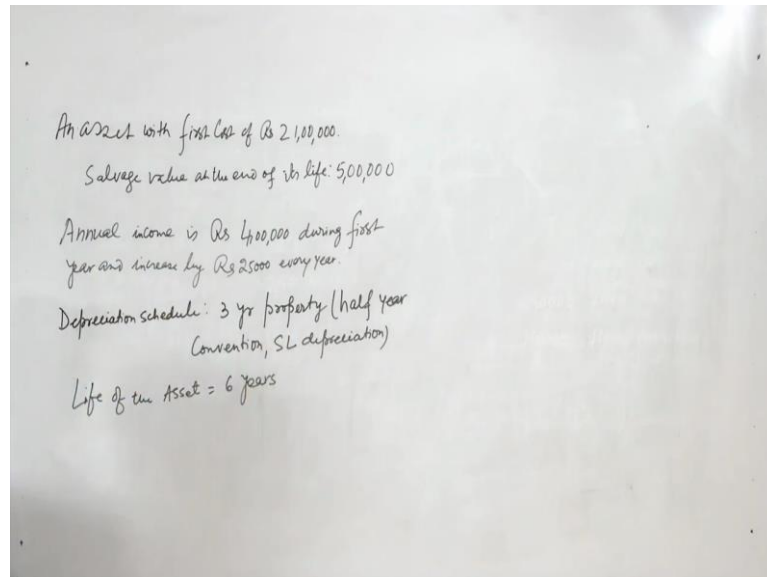 An asset with first Cost of Rs 21,00,000.
Salvage value at the end of its life: 5,00,000
Annual income is Rs 4,00,000 during first
year and increase by Rs 25000 every year.
Depreciation schedule: 3 yr property (half year
Convention, SL depreciation)
Life of the Asset = 6 years